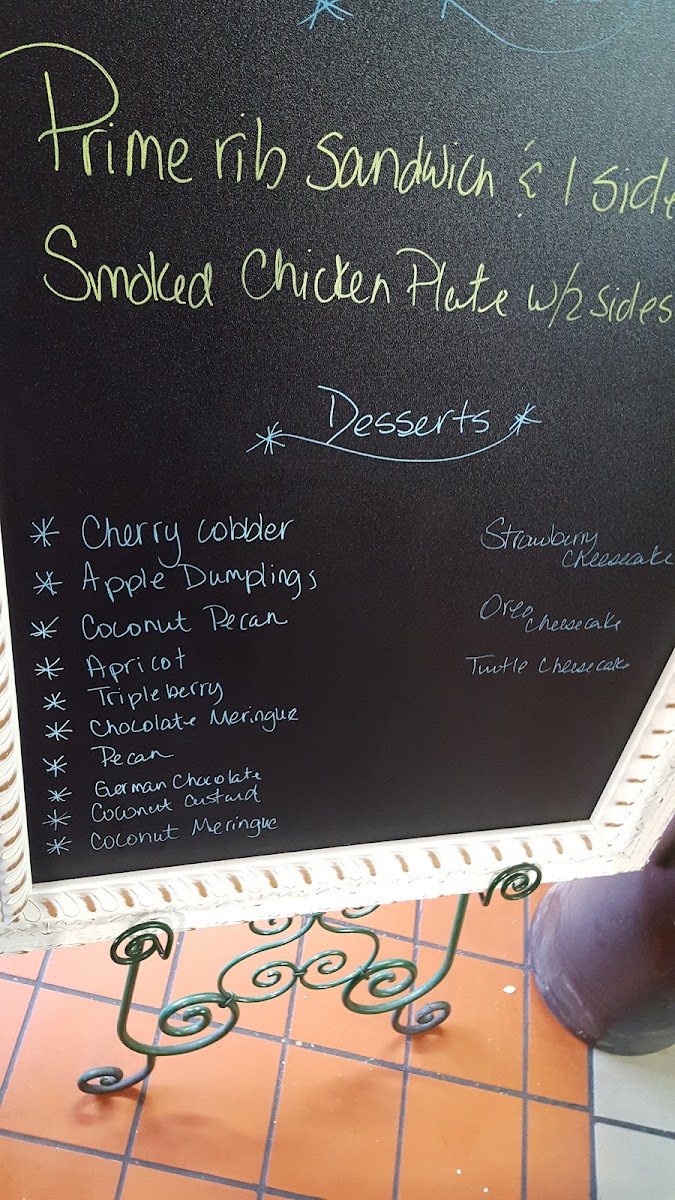 Prime rib Sandwich & 1 side
Smoked Chicken Plate w/2 sides
Desserts
* Cherry Cobbler
* Apple Dumplings
* Coconut Pecan
* Apricot
* Tripleberry
* Chocolate Meringue
* Pecan
* German Chocolate
* Coconut Custard
* Coconut Meringue
Strawberry
Cheesecake
Oreo
Cheesecake
Turtle Cheesecake